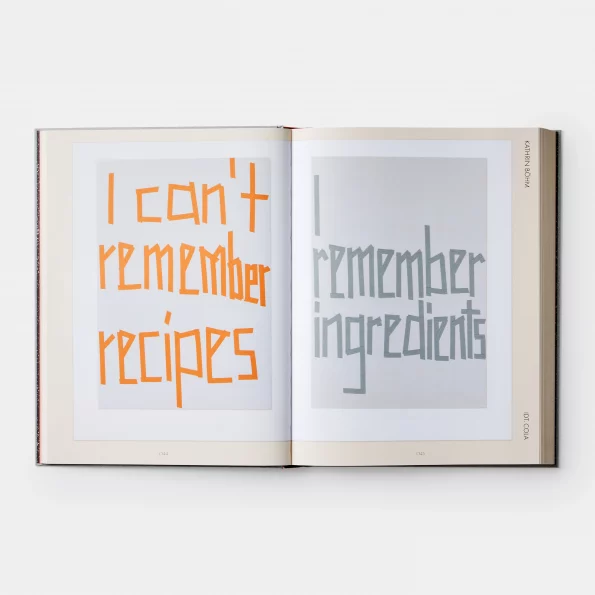 I can't
remember
recipes
I
remember
ingredients
KATHRIN BÖHM